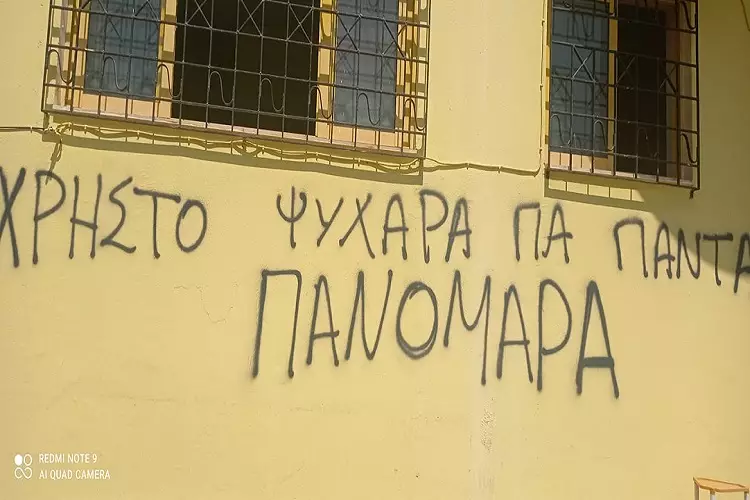 ΧΡΗΣΤΟ ΨΥΧΑΡΑ ΠΑ ΠΑΝΤΑ
ΠΑΝΟΜΑΡΑ
REDMI NOTE 9
AI QUAD CAMERA